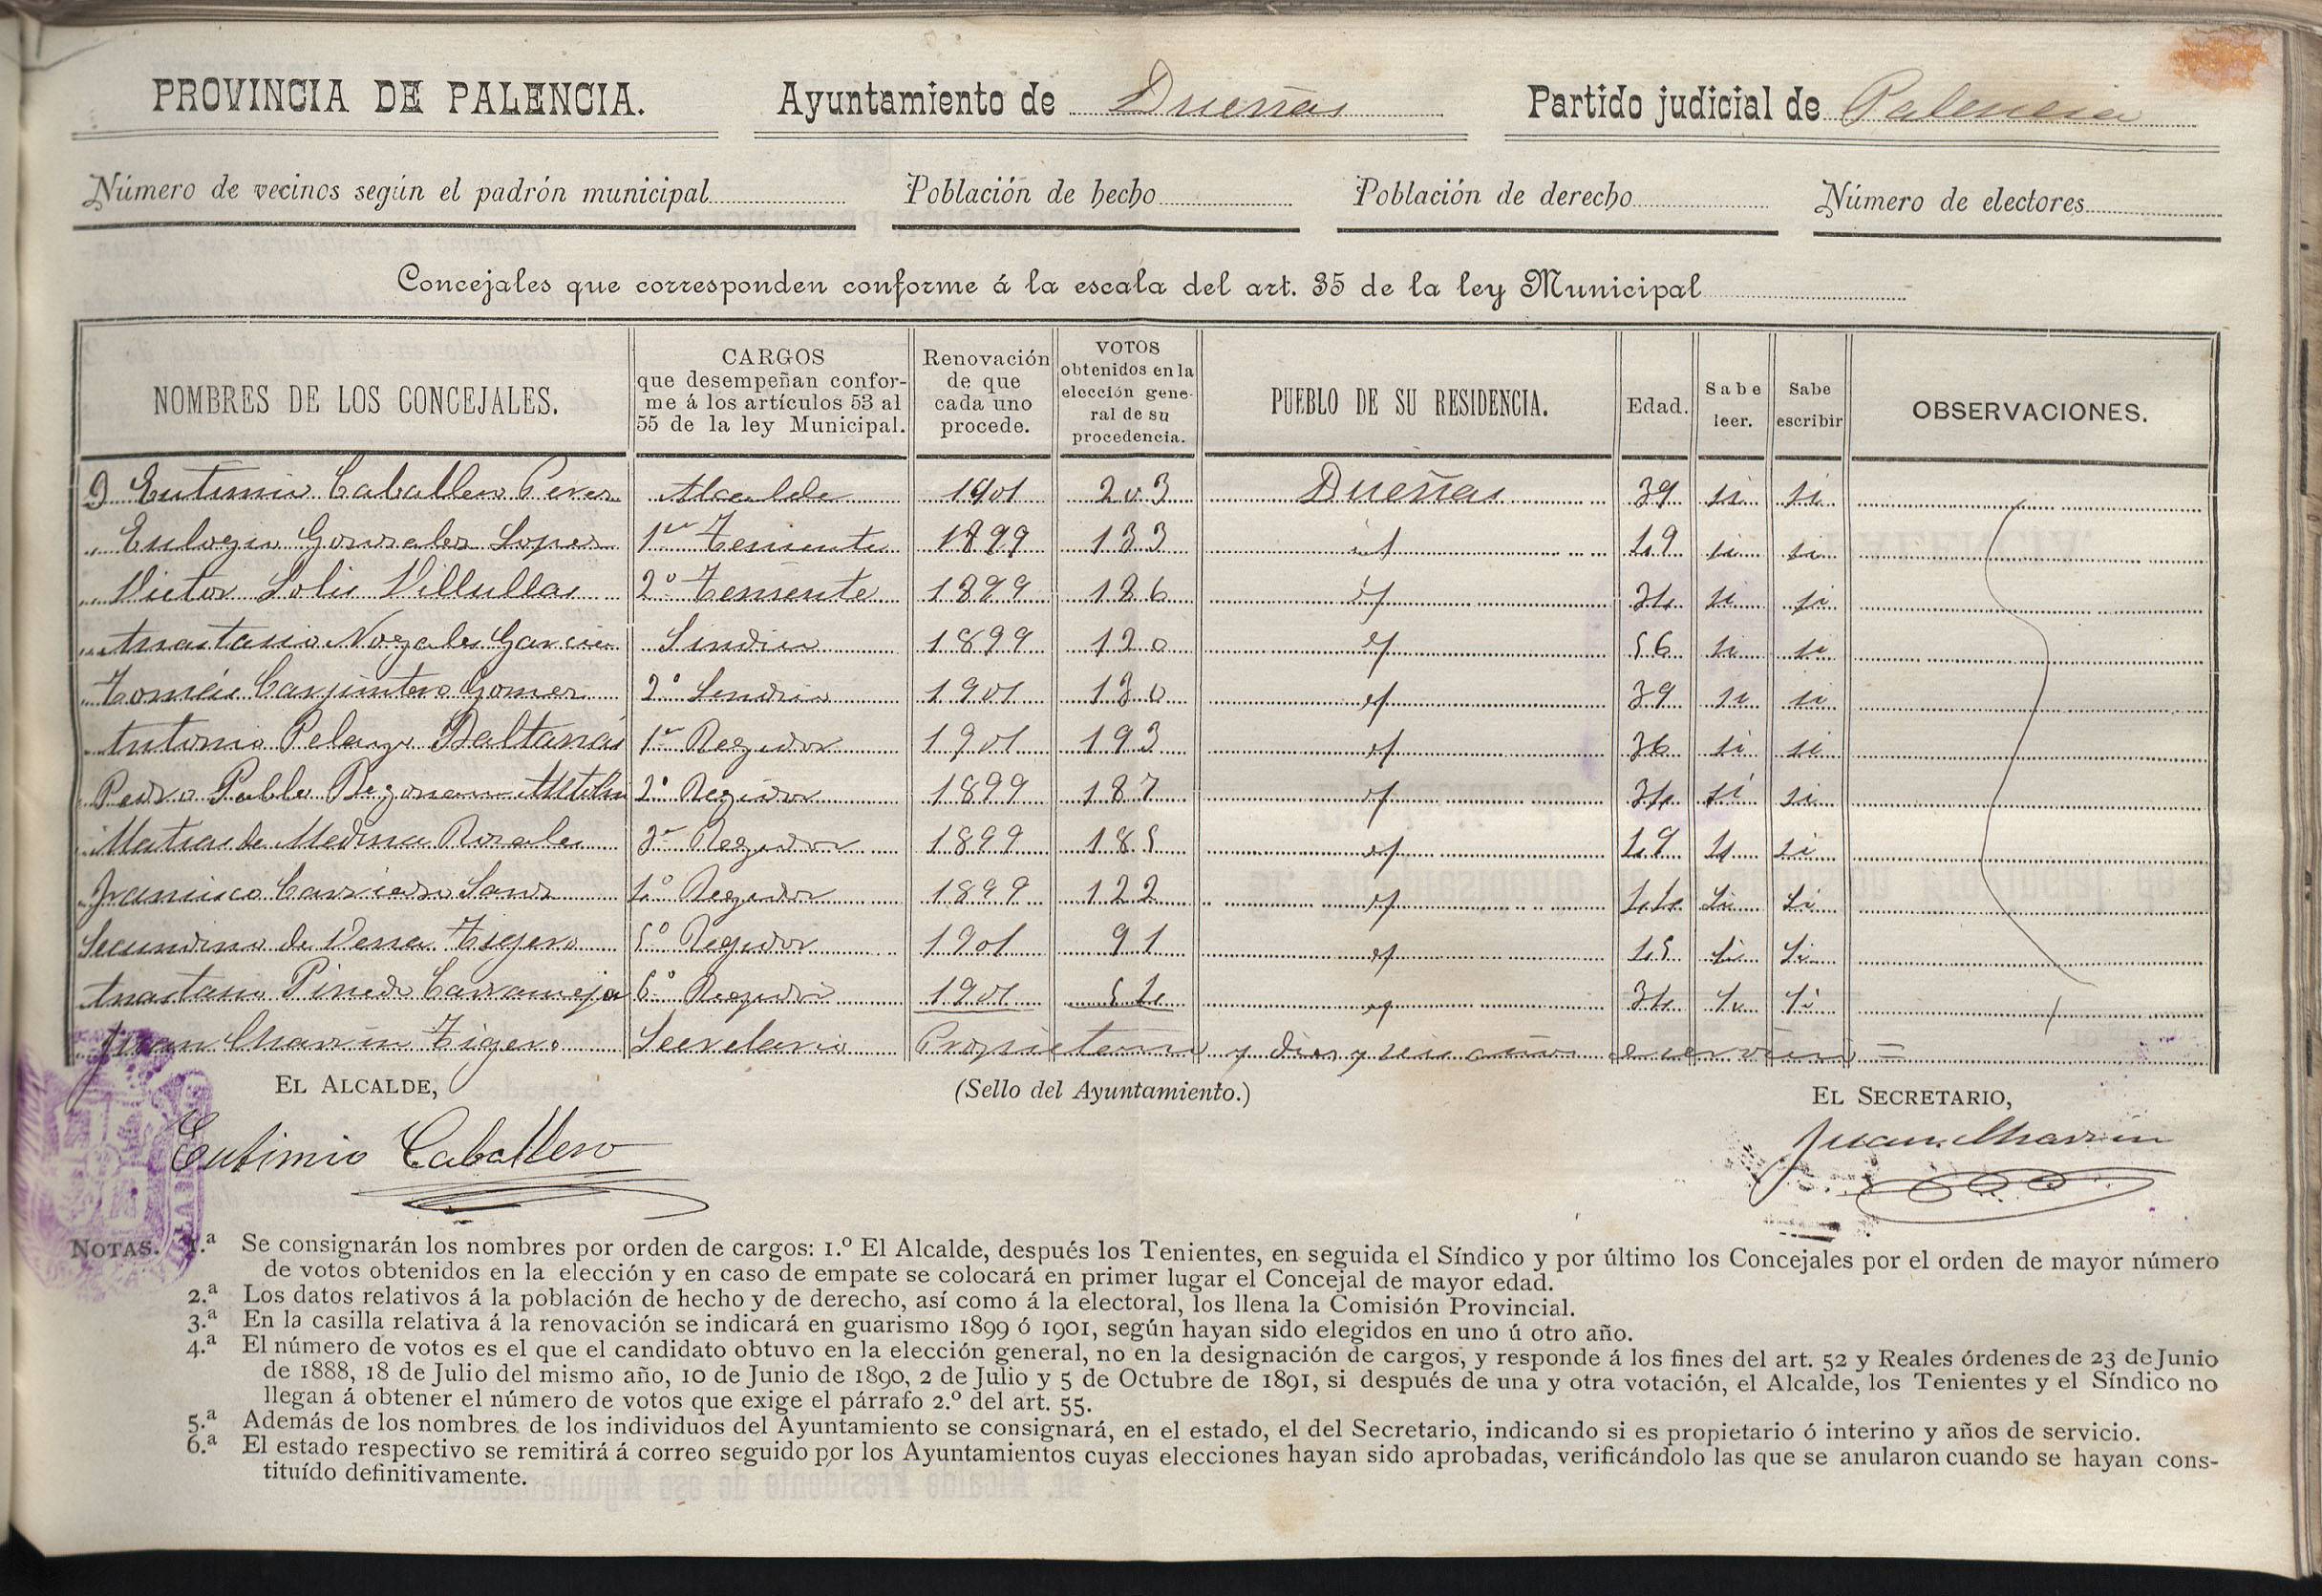 PROVINCIA DE PALENCIA. Ayuntamiento de Dueñas Partido judicial de Palencia
Número de vecinos según el padrón municipal Población de hecho Población de derecho Número de electores
Concejales que corresponden conforme á la escala del art. 35 de la ley Municipal
NOMBRES DE LOS CONCEJALES. CARGOS que desempeñan conforme á los artículos 53 al 55 de la ley Municipal. Renovación de que cada uno procede. VOTOS obtenidos en la elección general de su procedencia. PUEBLO DE SU RESIDENCIA. Edad. Sabe leer. Sabe escribir OBSERVACIONES.
D Eutimio Caballero Perez Alcalde 1901 203 Dueñas 39 si si
" Eulogio Gonzalez Lopez 1er Teniente 1899 133 id 49 si si
" Victor Solis Villullas 2º Teniente 1899 186 id 34 si si
" Anastasio Nogales Garcia Sindico 1899 120 id 56 si si
" Tomás Carpintero Gomez 2º Sindico 1901 130 id 39 si si
" Antonio Pelayo Baltanás 1er Regidor 1901 193 id 36 si si
" Pedro Pablo 2º Regidor 1899 187 id 34 si si
" Matias de Medina Rosales 3er Regidor 1899 185 id 49 si si
Francisco Carriedo Sanz 4º Regidor 1899 122 id 44 si si
Secundino de Vena Tijero 5º Regidor 1901 91 id 45 si si
Anastasio Pinedo 6º Regidor 1901 54 id 34 si si
Juan Marrin Tigero Secretario Propietario y diez y seis años
EL ALCALDE, (Sello del Ayuntamiento.) EL SECRETARIO,
Eutimio Caballero Juan Marrin
NOTAS. 1.ª Se consignarán los nombres por orden de cargos: 1.º El Alcalde, después los Tenientes, en seguida el Síndico y por último los Concejales por el orden de mayor número
de votos obtenidos en la elección y en caso de empate se colocará en primer lugar el Concejal de mayor edad.
2.ª Los datos relativos á la población de hecho y de derecho, así como á la electoral, los llena la Comisión Provincial.
3.ª En la casilla relativa á la renovación se indicará en guarismo 1899 ó 1901, según hayan sido elegidos en uno ú otro año.
4.ª El número de votos es el que el candidato obtuvo en la elección general, no en la designación de cargos, y responde á los fines del art. 52 y Reales órdenes de 23 de Junio
de 1888, 18 de Julio del mismo año, 10 de Junio de 1890, 2 de Julio y 5 de Octubre de 1891, si después de una y otra votación, el Alcalde, los Tenientes y el Síndico no
llegan á obtener el número de votos que exige el párrafo 2.º del art. 55.
5.ª Además de los nombres de los individuos del Ayuntamiento se consignará, en el estado, el del Secretario, indicando si es propietario ó interino y años de servicio.
6.ª El estado respectivo se remitirá á correo seguido por los Ayuntamientos cuyas elecciones hayan sido aprobadas, verificándolo las que se anularon cuando se hayan cons-
tituído definitivamente.